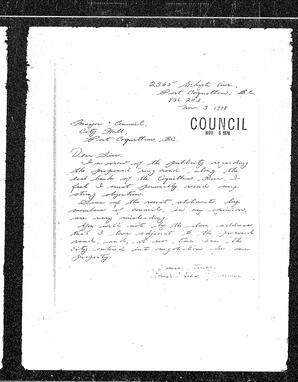 2365 Whyte Ave,
Port Coquitlam, B.C.
V3C 2A3.
Nov. 3 1978
COUNCIL
NOV 6 1978
Mayor & Council,
City Hall,
Port Coquitlam, BC
Dear Sirs:
In view of the publicity regarding
the proposed "ring road" along the
west bank of the Coquitlam River, I
feel I must formally record my
strong objection.
Some of the recent statements by
members of council, in my opinion,
are very misleading.
You will note by the above address
that I live adjacent to the proposed
road, and, at no time has the
City entered into negotiation for our
property.
Yours Truly,